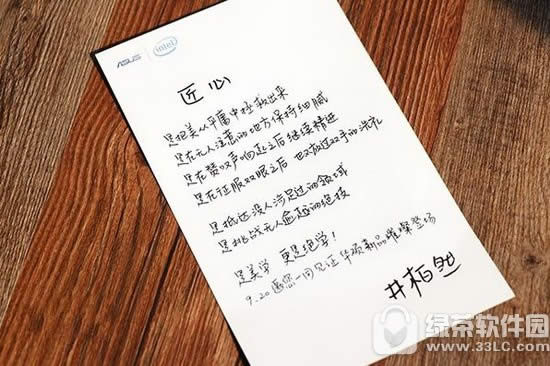 ASUS intel
匠心
是把美从平庸中拯救出来
是在无人注意的地方保持细腻
是在赞叹声响起之后继续精进
是在征服双眼之后 也不放过双手的洗礼
是抵达没人涉足过的领域
是挑战无人逾越的绝技
是美学 更是绝学！
9.20邀您一同见证华硕新品璀璨登场
井柏然
绿茶软件园
www.33LC.com